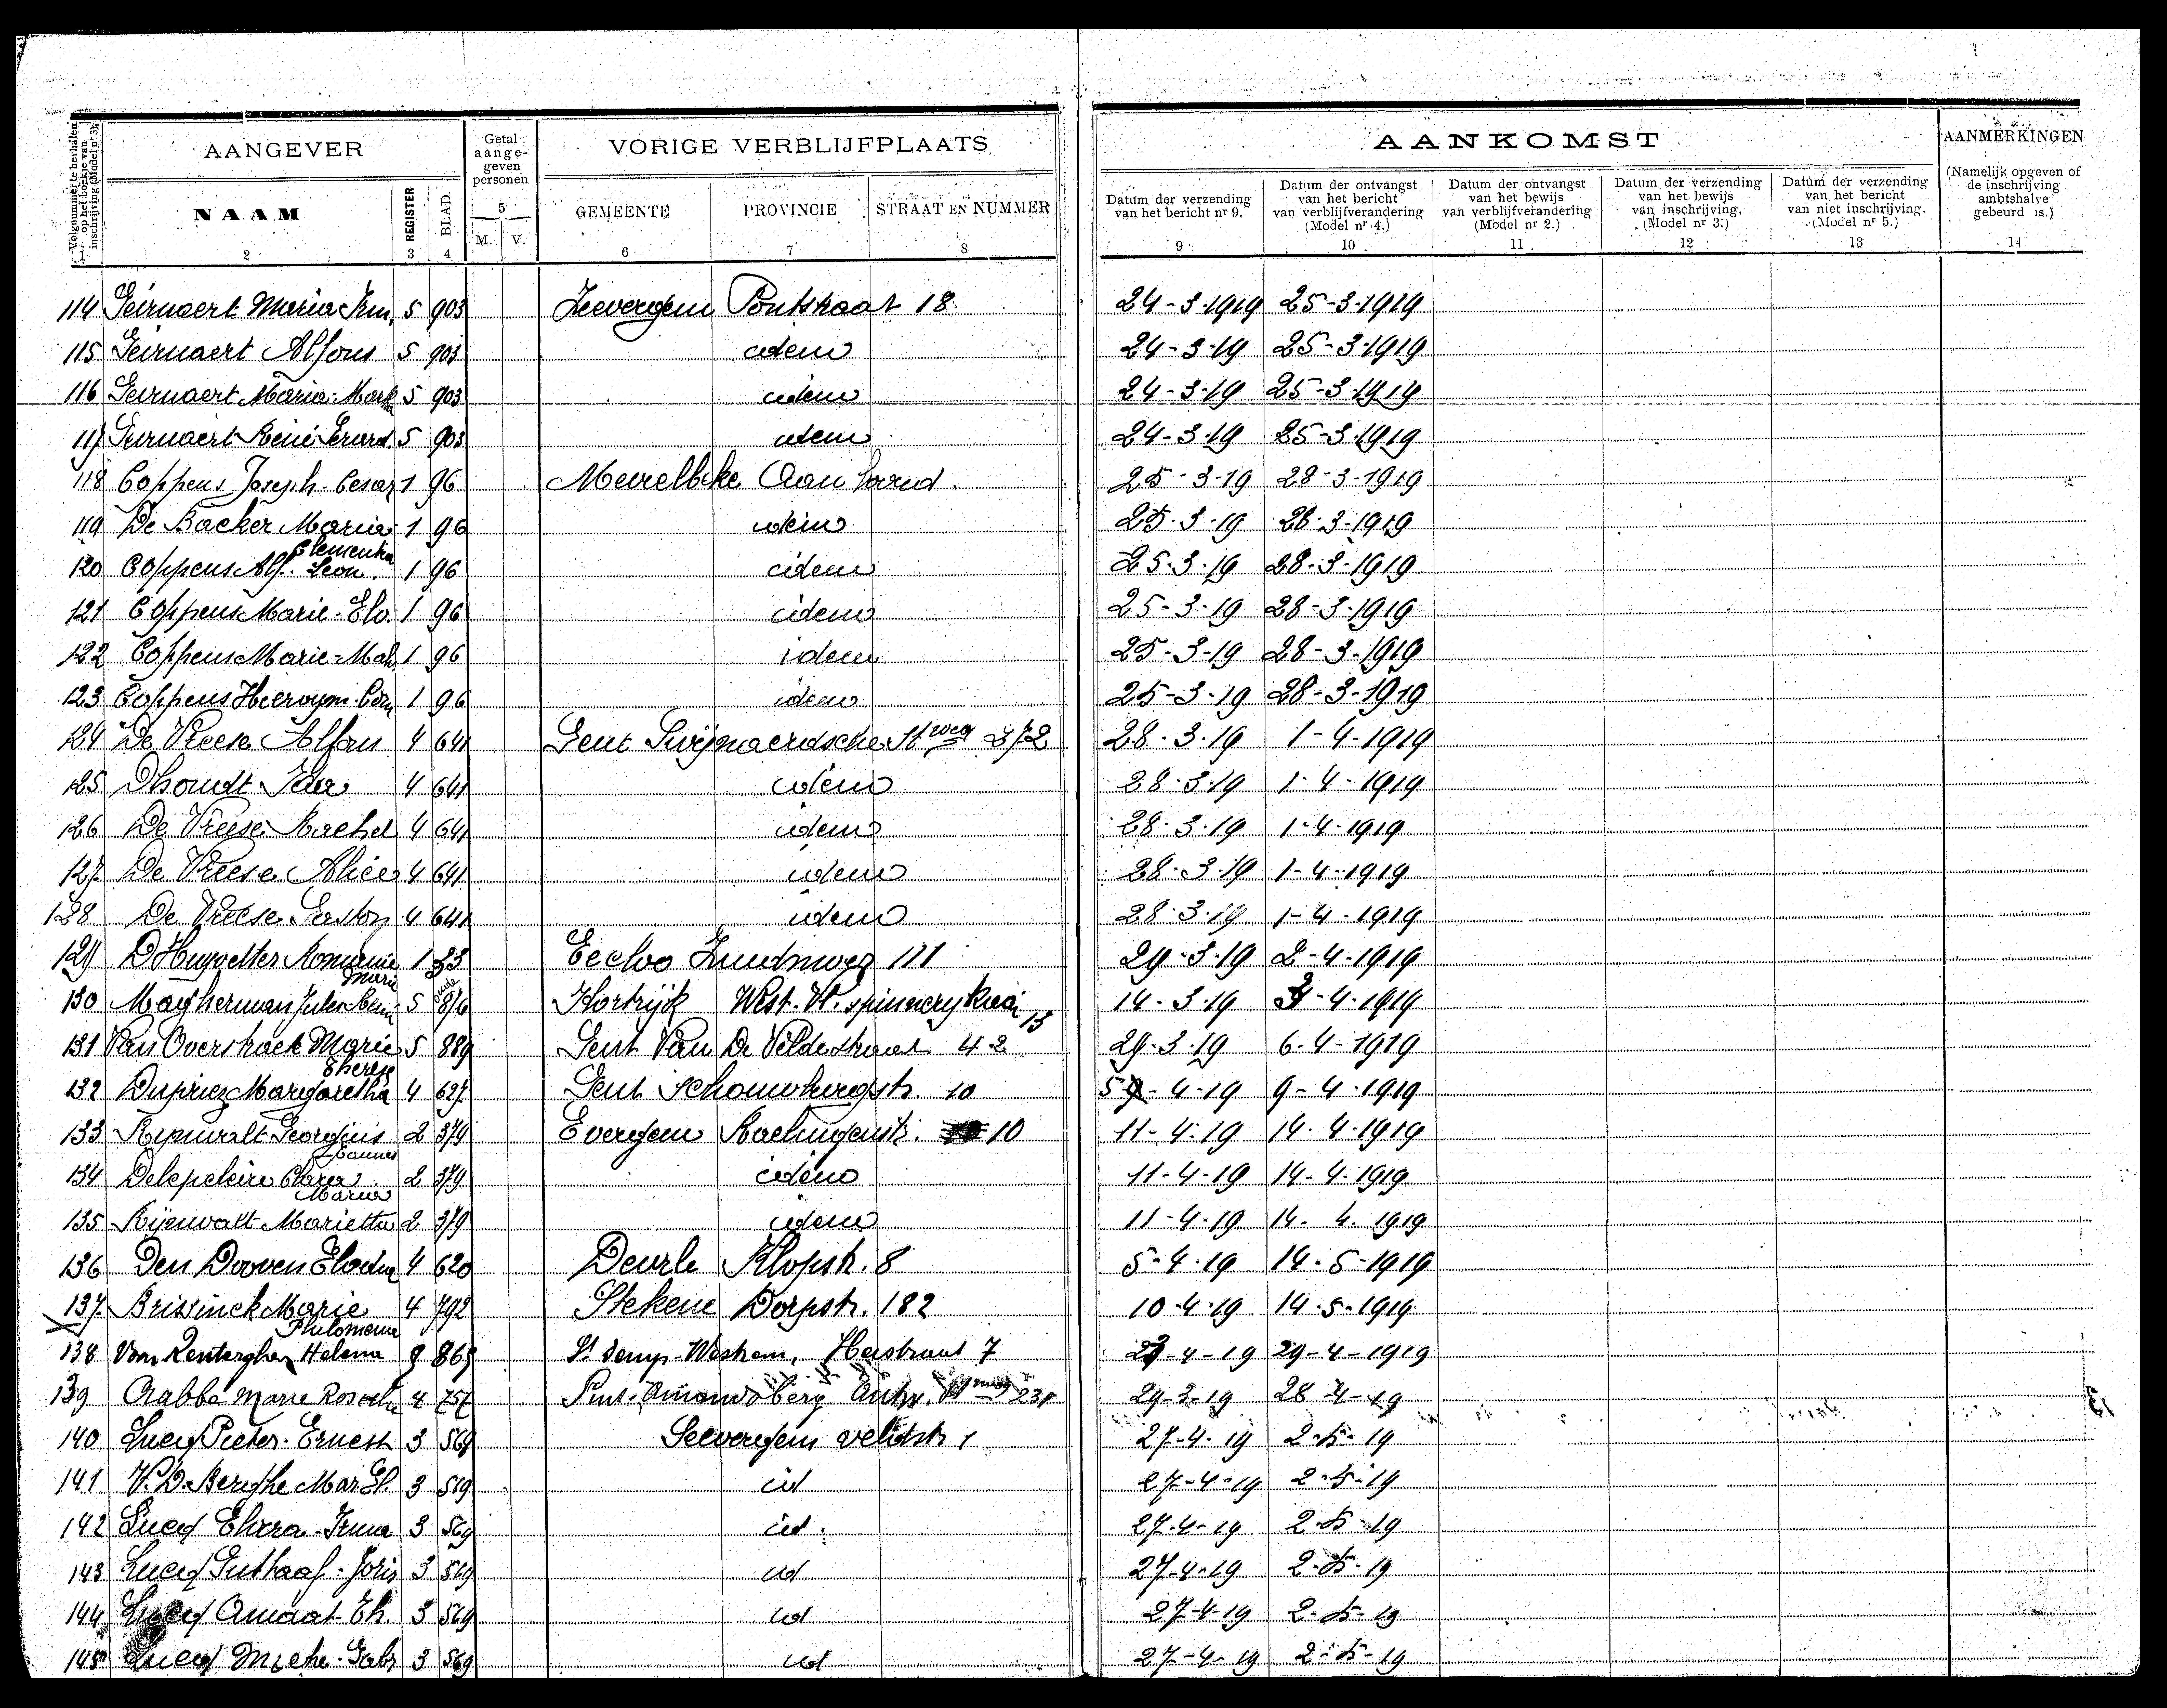 Volgnummer te herhalen op het boekje van inschrijving (Model nr 3).
AANGEVER
Getal aange-geven personen
VORIGE VERBLIJFPLAATS
AANKOMST
AANMERKINGEN
(Namelijk opgeven of de inschrijving ambtshalve gebeurd is.)
NAAM REGISTER BLAD 5 M. V. GEMEENTE PROVINCIE STRAAT EN NUMMER
Datum der verzending van het bericht nr 9.
Datum der ontvangst van het bericht van verblijfverandering (Model nr 4.)
Datum der ontvangst van het bewijs van verblijfverandering (Model nr 2.)
Datum der verzending van het bewijs van inschrijving. (Model nr 3.)
Datum der verzending van het bericht van niet inschrijving. (Model nr 5.)
1 2 3 4 6 7 8 9 10 11 12 13 14
114 Geirnaert Maria Irm. 5 903 Zeevergem Pontstraat 18 24-3-1919 25-3-1919
115 Geirnaert Alfons 5 903 idem 24-3-19 25-3-1919
116 Geirnaert Maria-Martha 5 903 idem 24-3-19 25-3-1919
117 Geirnaert René Gerard. 5 903 idem 24-3-19 25-3-1919
118 Coppens Joseph-Cesar 1 96 Meirelbeke 25-3-19 28-3-1919
119 De Backer Maria Clementia 1 96 idem 25-3-19 28-3-1919
120 Coppens Alf. Leon. 1 96 idem 25-3-19 28-3-1919
121 Coppens Marie-Elo. 1 96 idem 25-3-19 28-3-1919
122 Coppens Marie-Mah 1 96 idem 25-3-19 28-3-1919
123 Coppens Hieronym. 1 96 idem 25-3-19 28-3-1919
124 De Vreese Alfons 4 641 Gent Swijnaerdsche Stweg 372 28-3-19 1-4-1919
125 Dhondt Ida 4 641 idem 28-3-19 1-4-1919
126 De Vreese Rachel 4 641 idem 28-3-19 1-4-1919
127 De Vreese Alice 4 641 idem 28-3-19 1-4-1919
128 De Vreese Gaston 4 641 idem 28-3-19 1-4-1919
129 D'Huyvetter Romanie Marie 1 33 Eecloo 111 29-3-19 2-4-1919
130 Magherman Jules 5 Kortrijk West-Vl. spinnerykaai 13 14-3-19 3-4-1919
131 Van Overstraete Marie Therese 5 889 Gent Van De Veldestraat 42 29-3-19 6-4-1919
132 Dupriez Margaretha 4 627 Gent Schouwburgstr. 10 5-4-19 9-4-1919
133 Rynwalt Georgius Joannes 2 379 Evergem 10 11-4-19 14-4-1919
134 Delepeleire Clara Maria 2 379 idem 11-4-19 14-4-1919
135 Rijnwalt Marietta 2 379 idem 11-4-19 14-4-1919
136 Den Dooven Elodie 4 620 Deurle Klopstr. 8 5-4-19 14-5-1919
137 Brissinck Marie Philomena 4 792 Stekene Dorpstr. 182 10-4-19 14-5-1919
138 Van Renterghem Helena 869 St Denijs-Westrem, Heistraat 7 23-4-19 29-4-1919
139 Crabbe Marie Rosalie 4 757 Sint-Amandsberg Antw. Stweg 231 29-3-19 28-4-19
140 Lucq Pieter-Ernest 3 569 Seevergem veldstr 1 27-4-19 2-5-19
141 V.D.Berghe Mar. El. 3 569 id 27-4-19 2-5-19
142 Lucq Elvira-Irma 3 569 id. 27-4-19 2-5-19
143 Lucq Gustaaf-Joris 3 569 id 27-4-19 2-5-19
144 Lucq Amaat-Th. 3 569 id 27-4-19 2-5-19
145 Lucq Miche-Gabr 3 569 id 27-4-19 2-5-19